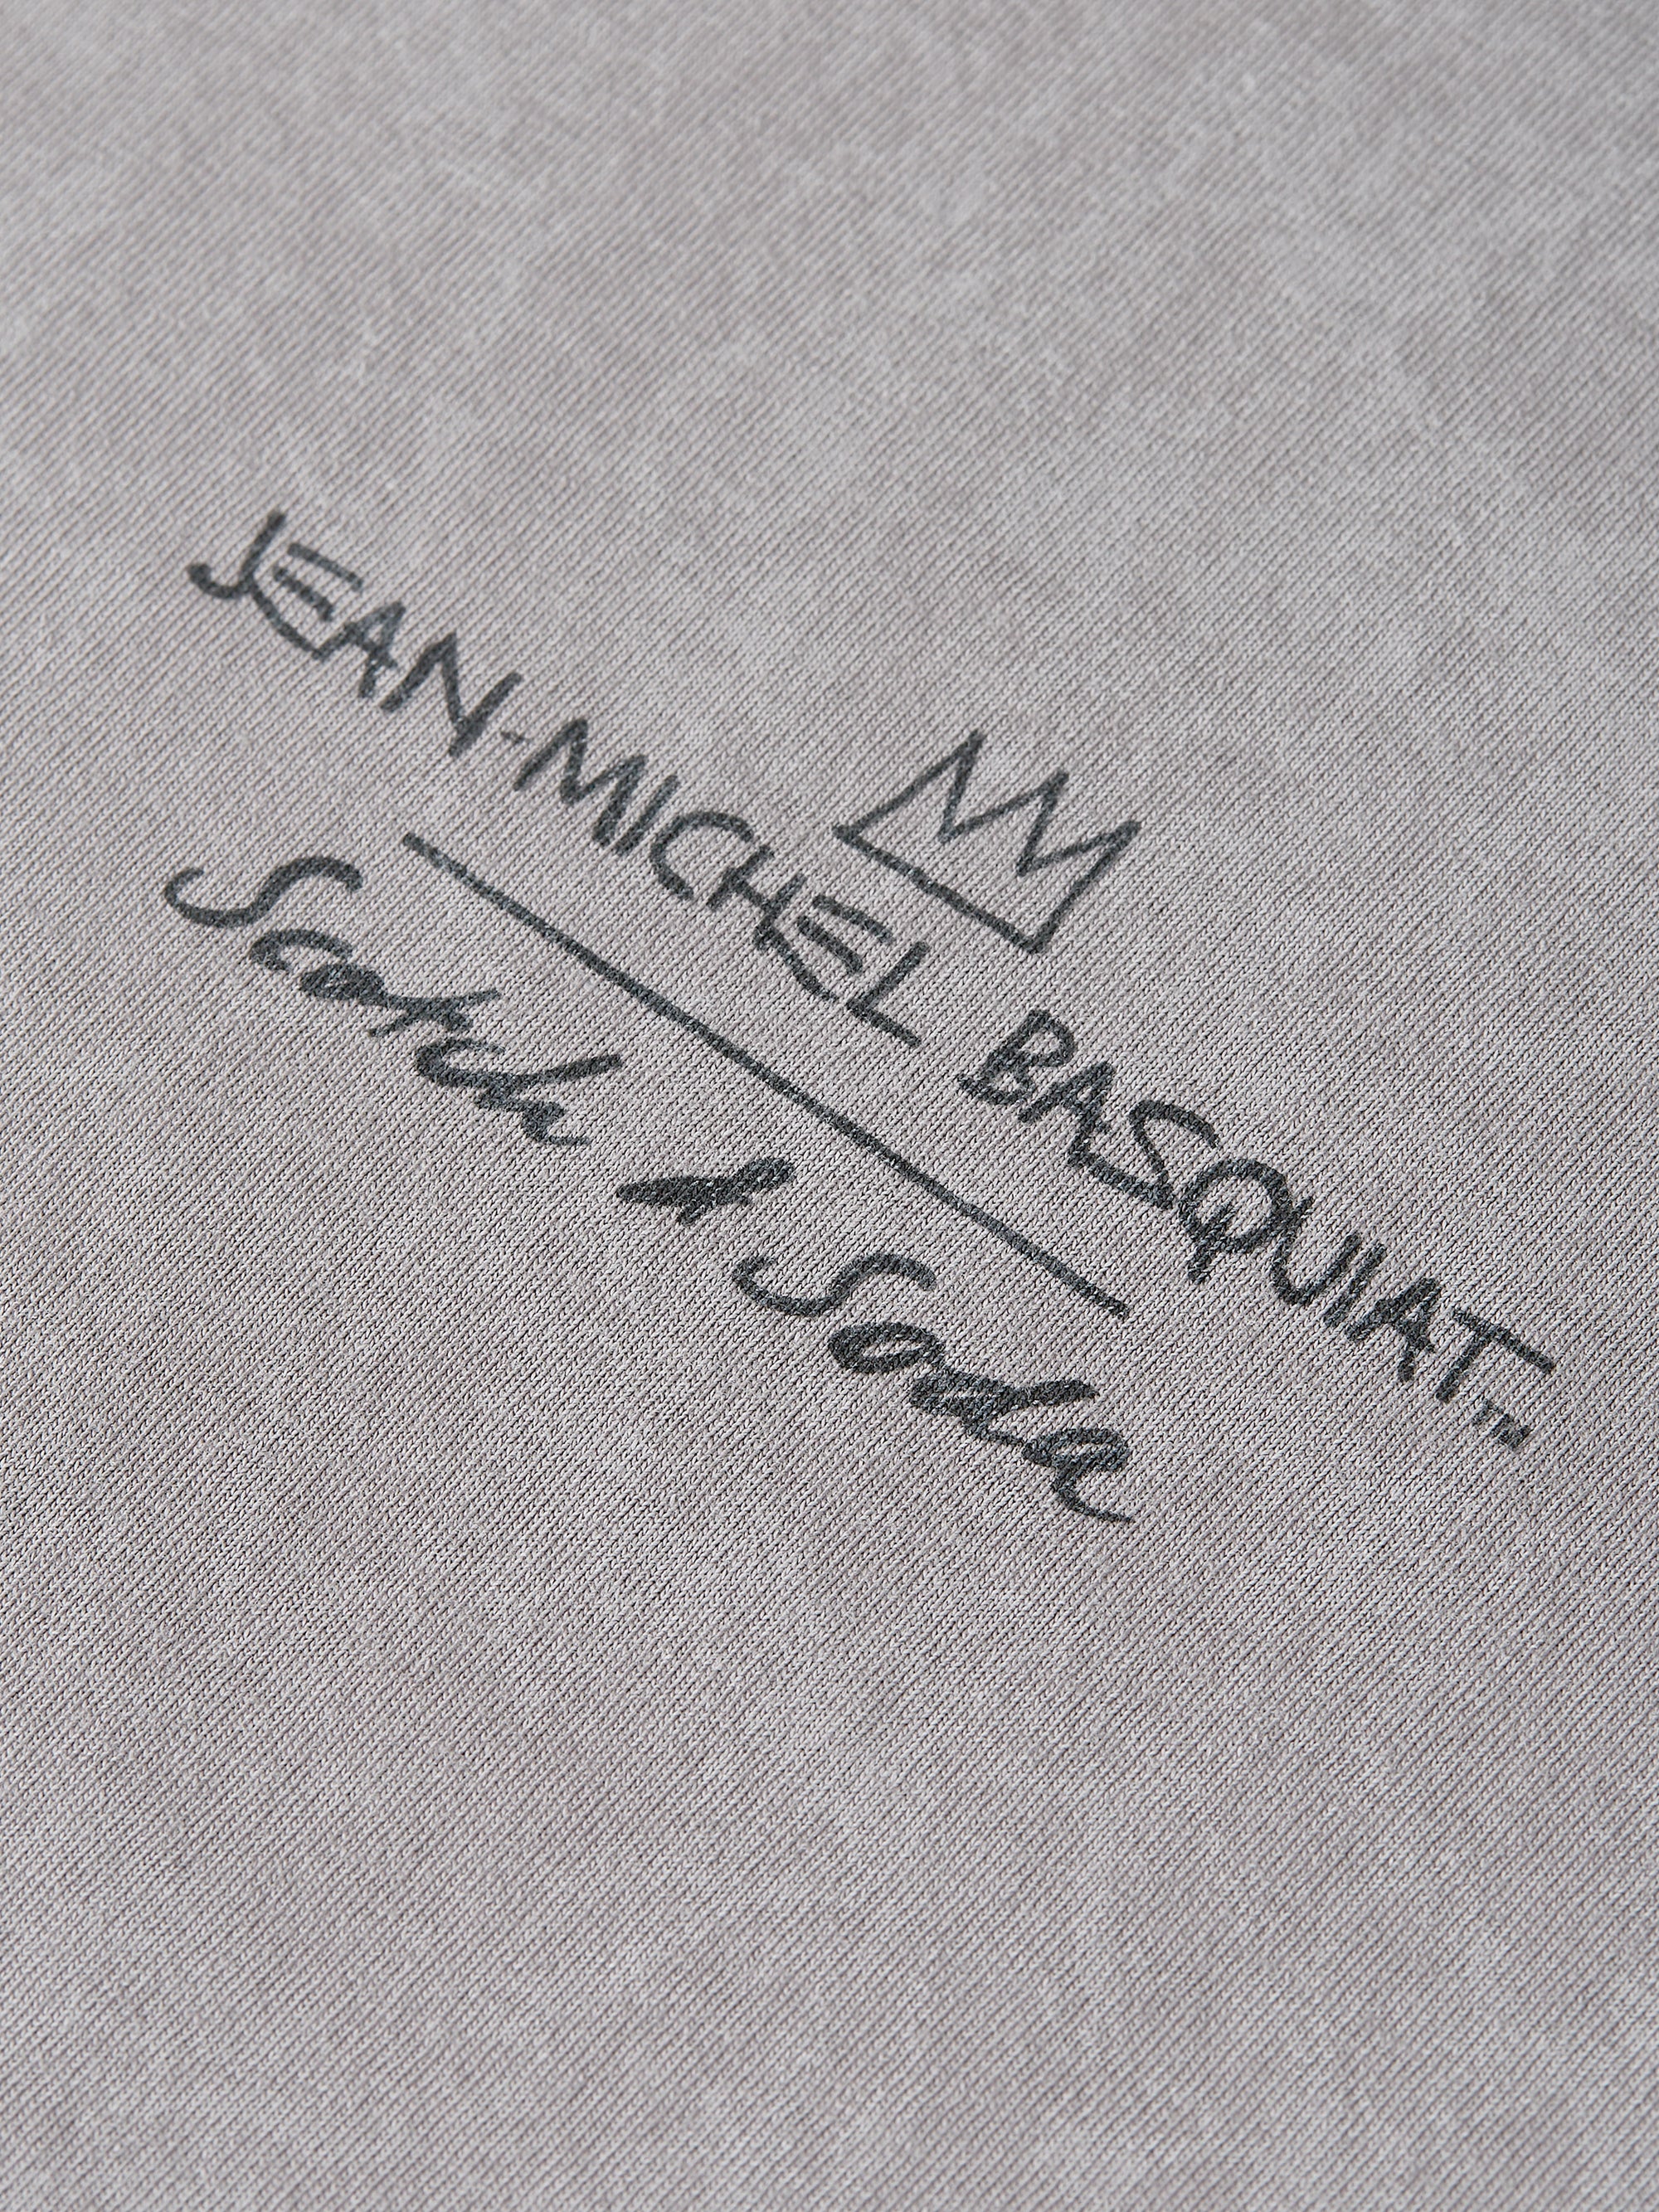 JEAN-MICHEL BASQUIAT™
Scotch & Soda